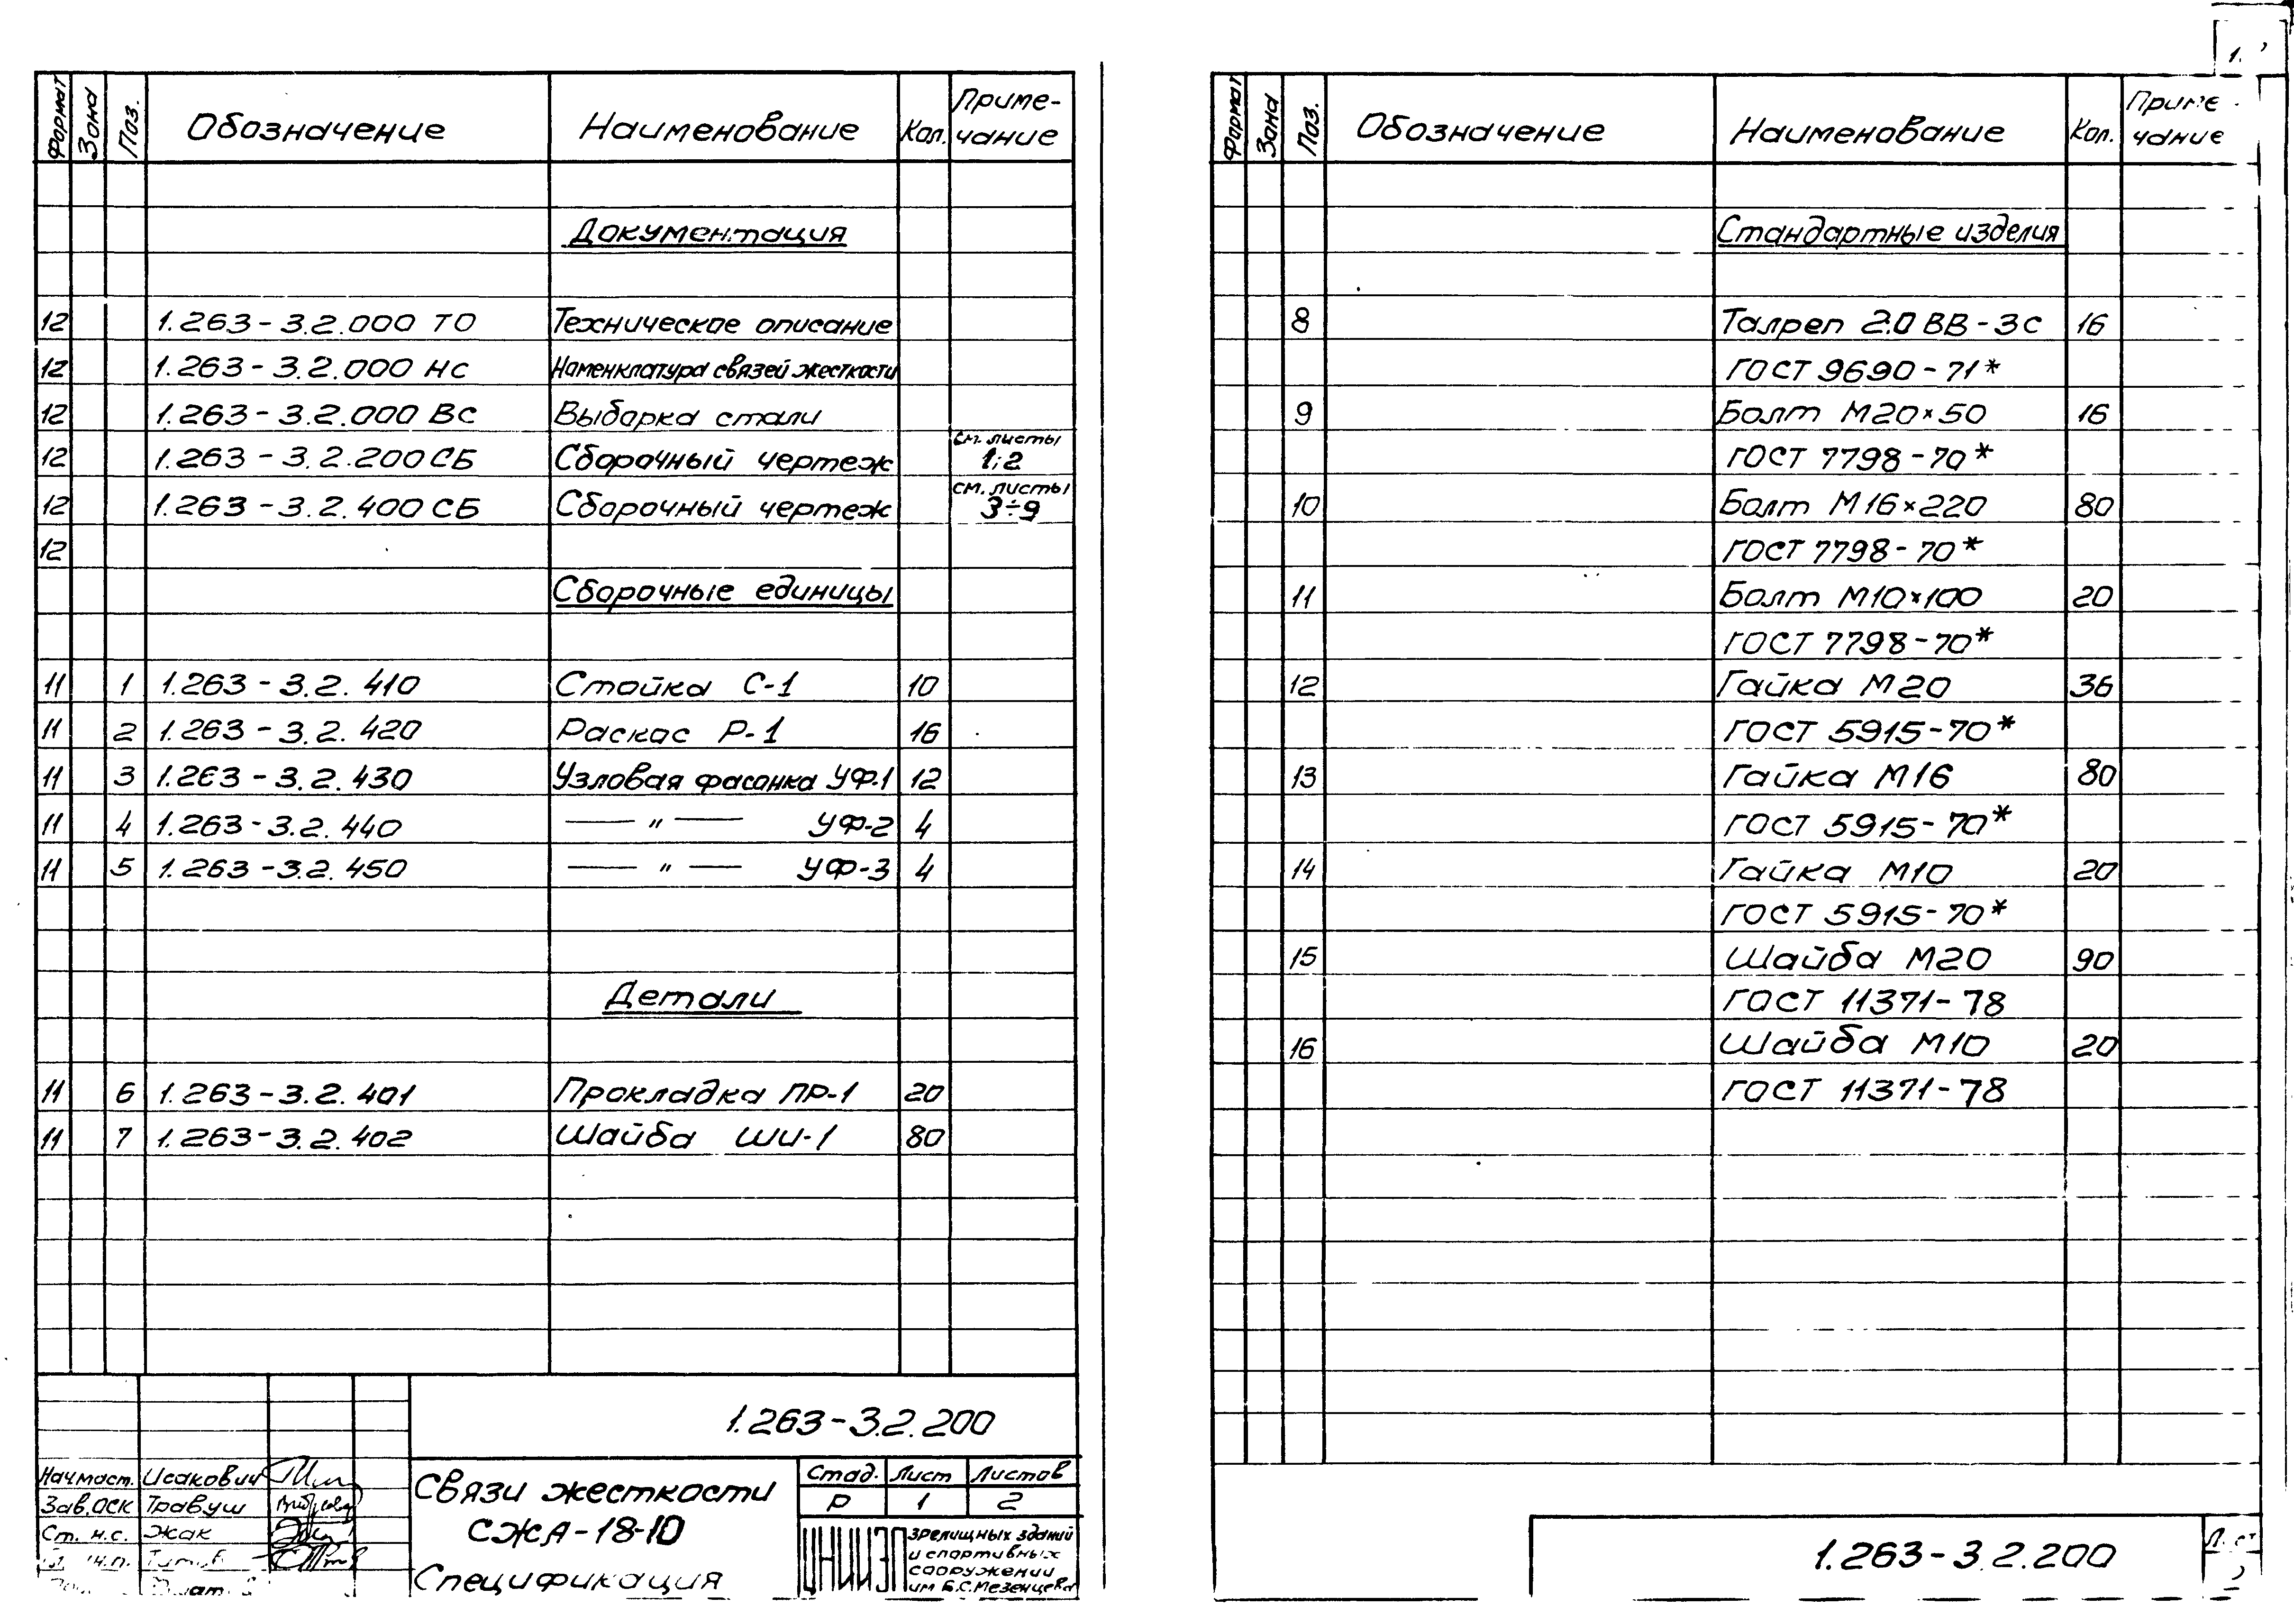 Формат Зона Поз. Обозначение Наименование Кол. Приме-
чание
Документация
12 1.263-3.2.000 ТО Техническое описание
12 1.263-3.2.000 НС Номенклатура связей жесткости
12 1.263-3.2.000 ВС Выборка стали
12 1.263-3.2.200 СБ Сборочный чертеж см. листы 1;2
12 1.263-3.2.400 СБ Сборочный чертеж см. листы 3÷9
12
Сборочные единицы
11 1 1.263-3.2.410 Стойка С-1 10
11 2 1.263-3.2.420 Раскос Р-1 16
11 3 1.263-3.2.430 Узловая фасонка УФ-1 12
11 4 1.263-3.2.440 — " — УФ-2 4
11 5 1.263-3.2.450 — " — УФ-3 4
Детали
11 6 1.263-3.2.401 Прокладка ПР-1 20
11 7 1.263-3.2.402 Шайба ШИ-1 80
1.263-3.2.200
Нач.маст. Исакович
Зав.ОСК Травуш
Ст. н.с. Жак
Связи жесткости
СЖА-18-10
Спецификация
Стад. Лист Листов
Р 1 2
ЦНИИЭП зрелищных зданий
и спортивных
сооружений
им Б.С.Мезенцева
Формат Зона Поз. Обозначение Наименование Кол. Приме-
чание
Стандартные изделия
8 Талреп 2.0 ВВ-3с 16
ГОСТ 9690-71*
9 Болт М20×50 16
ГОСТ 7798-70*
10 Болт М16×220 80
ГОСТ 7798-70*
11 Болт М10×100 20
ГОСТ 7798-70*
12 Гайка М20 36
ГОСТ 5915-70*
13 Гайка М16 80
ГОСТ 5915-70*
14 Гайка М10 20
ГОСТ 5915-70*
15 Шайба М20 90
ГОСТ 11371-78
16 Шайба М10 20
ГОСТ 11371-78
1.263-3.2.200
Лист
2